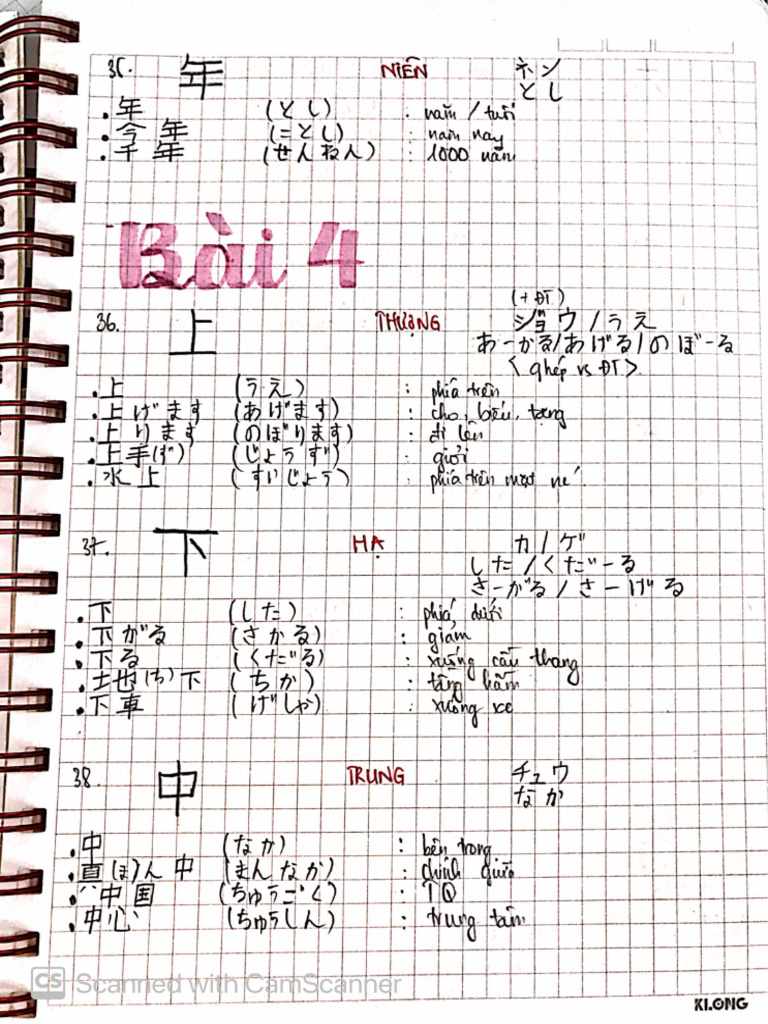 35. 年 NIÊN ネン
とし
. 年 (とし) : năm / tuổi
. 今年 (ことし) : năm nay
. 千年 (せんねん) : 1000 năm
Bài 4
(+ ĐT)
36. 上 THƯỢNG ジョウ / うえ
あーかる/あげる/のぼーる
<ghép vs ĐT>
. 上 (うえ) : phía trên
. 上げます (あげます) : cho, biếu, tặng
. 上ります (のぼります) : đi lên
. 上手(ず) (じょうず) : giỏi
. 水上 (すいじょう) : phía trên mặt
37. 下 HẠ カ / ゲ
した / くだーる
さーがる / さーげる
. 下 (した) : phía dưới
. 下がる (さかる) : giảm
. 下る (くだる) : xuống cầu thang
. 地(ち)下 (ちか) : tầng hầm
. 下車 (げしゃ) : xuống xe
38. 中 TRUNG チュウ
なか
. 中 (なか) : bên trong
. 真(ま)ん中 (まんなか) : chính giữa
. 中国 (ちゅうごく) : TQ
. 中心 (ちゅうしん) : trung tâm
CS Scanned with CamScanner
KLONG